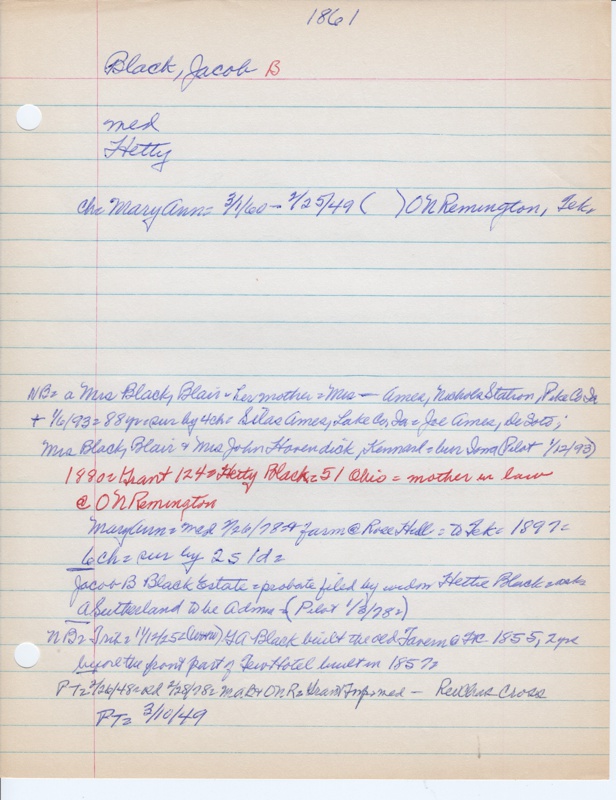 1861
Black, Jacob B
med
Hetty
ch = Mary Ann = 3/1/60 - 2/25/49 ( ) O N Remington, Tek.
NB = a Mrs Black, Blair = her mother = Mrs — Ames, Nichols Station, Pike Co
+ 1/6/93 = 88 yr = sur by 4 ch = Silas Ames, Lake Co, Ia = Joe Ames, De Soto;
Mrs Black, Blair + Mrs John Havendick, Kennard = bur Iowa (Pilot 1/12/93)
1880 = Grant 124 = Hetty Black = 51 Ohio = mother in law
@ O N Remington
Mary Ann = med 2/26/78 = farm @ Rose Hill = to Tek = 1897 =
6 ch = sur by 2 s 1 d =
Jacob B Black Estate = probate filed by widow Hettie Black = asks
A Sutherland to be Adms = (Pilot 1/3/78 =)
NB = Trib = 11/12/25 = G A Black built the old Tavern @ 1855, 2 yrs
before the front part of Hotel built in 1857 =
PT = 2/26/48 = 2/28/78 = O N R = Grant = med —
PT = 3/10/49